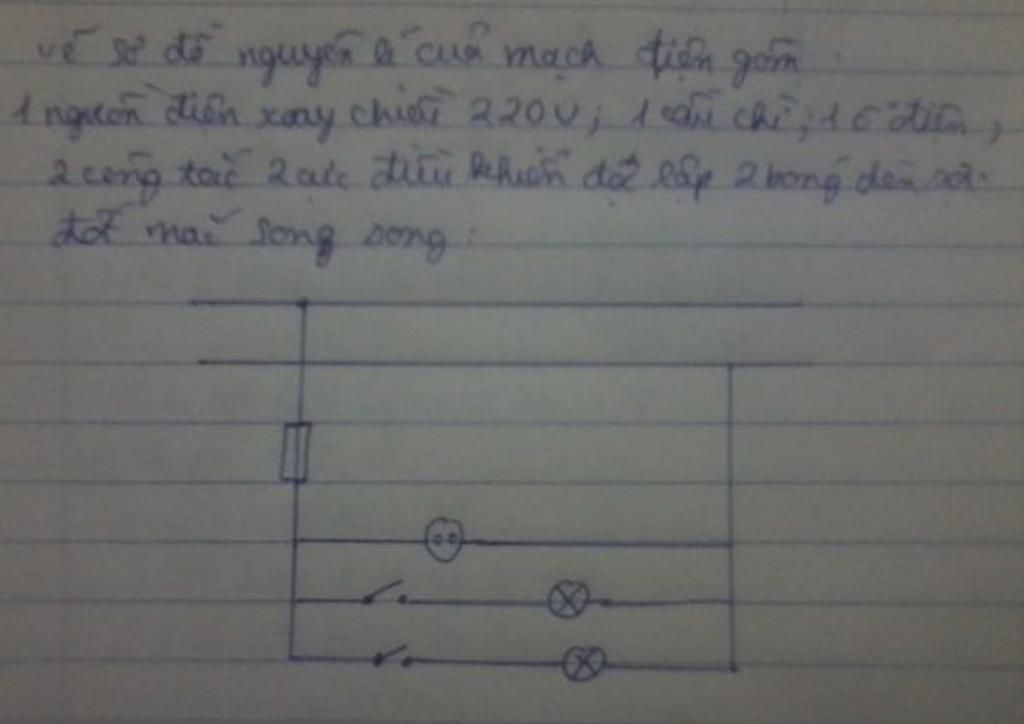 vẽ sơ đồ nguyên lí của mạch điện gồm.
1 nguồn điện xoay chiều 220V; 1 cầu chì; 1 ổ điện,
2 công tắc 2 cực điều khiển độc lập 2 bóng đèn sợi
đốt mắc song song: